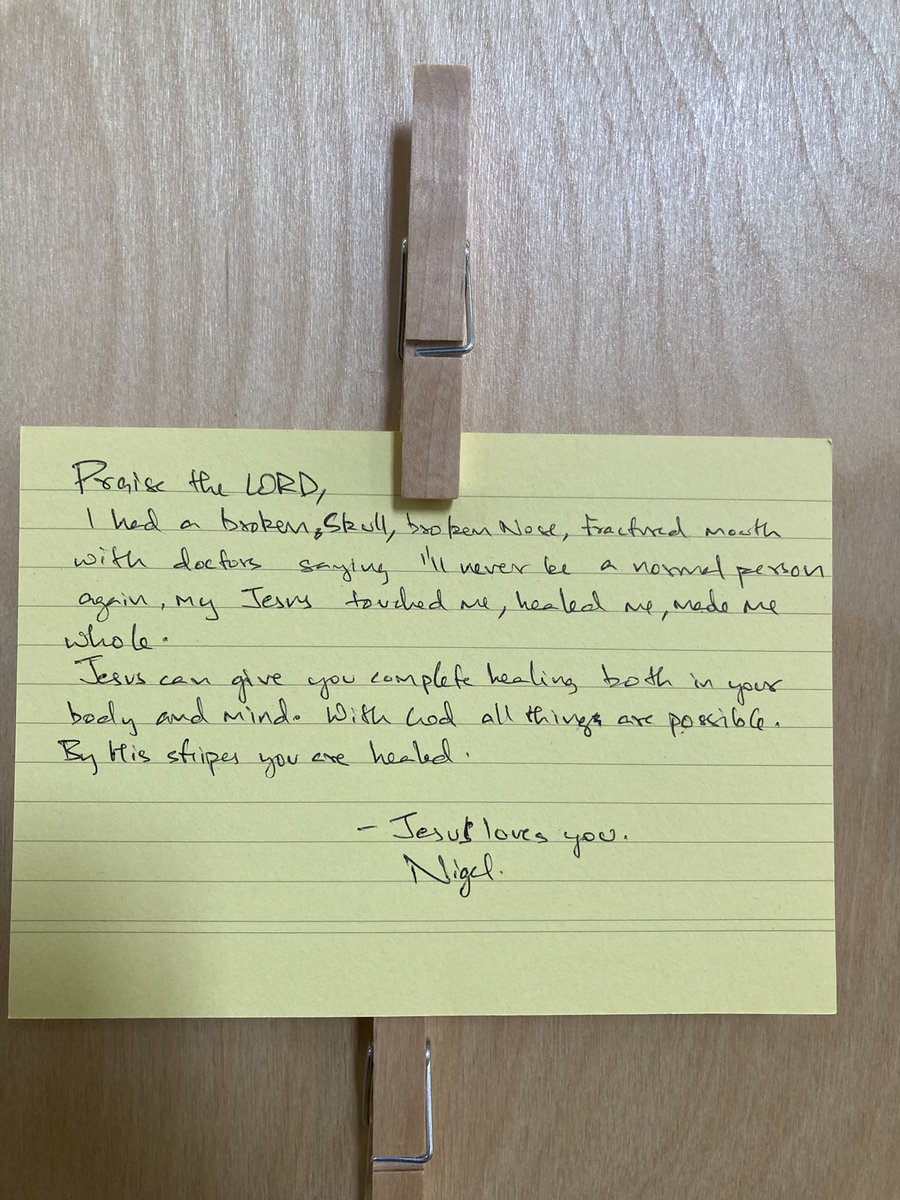 Praise the LORD,
I had a broken, Skull, broken Nose, fractured mouth
with doctors saying I'll never be a normal person
again, my Jesus touched me, healed me, made me
whole.
Jesus can give you complete healing both in your
body and mind. With God all things are possible.
By His stripes you are healed.
- Jesus loves you.
Nigel.